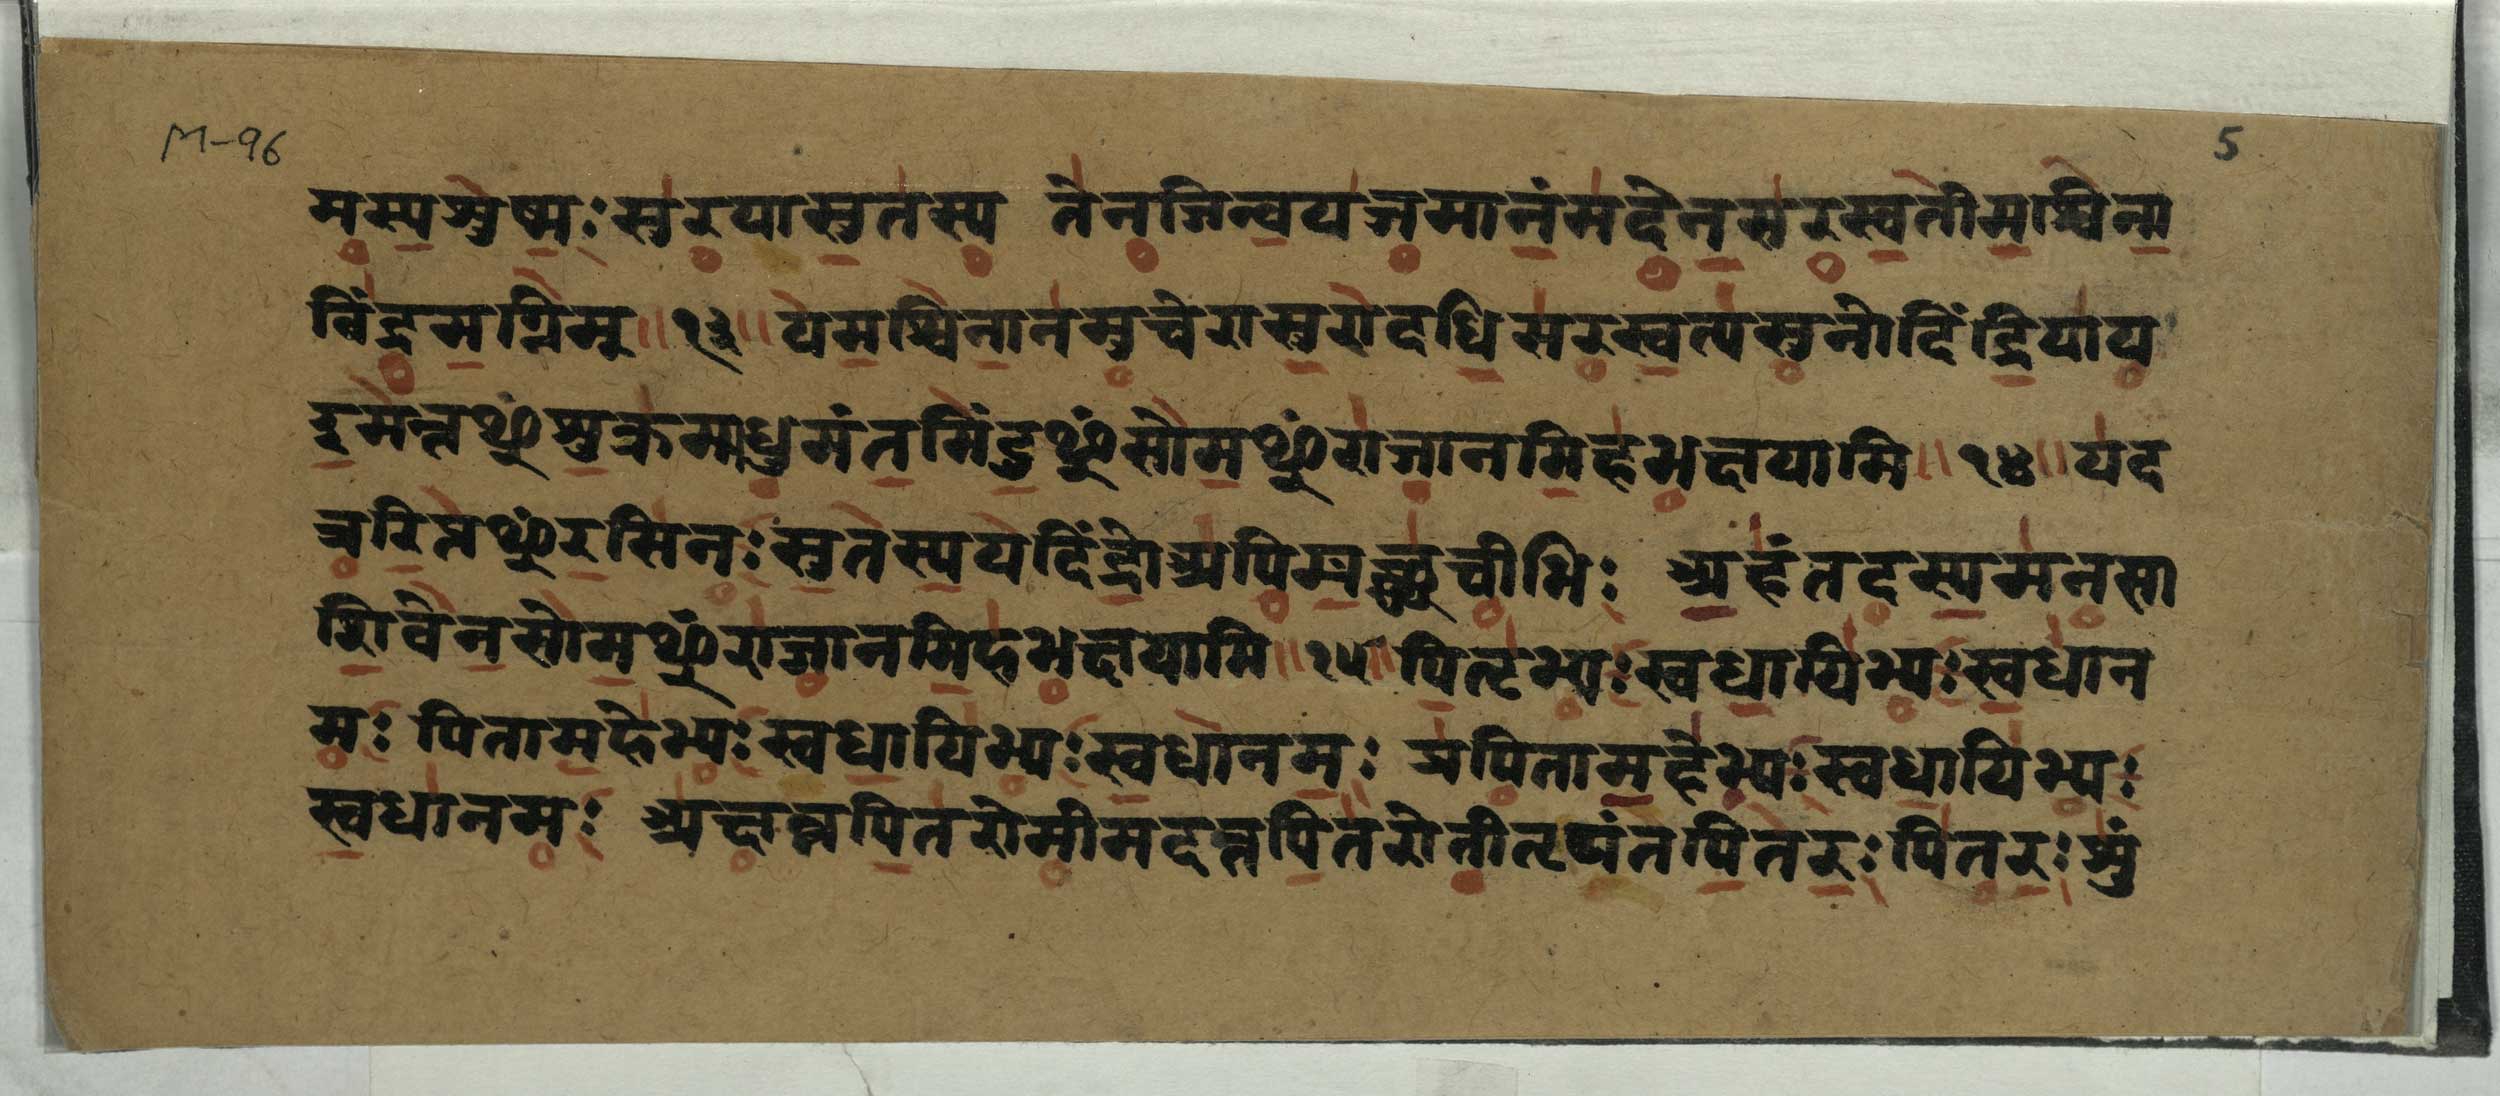 M-96
5
मस्यशुष्मः सुरयासुतस्य तेनजिन्वयजमानंमदेनसरस्वतीमश्विना
विंद्रमग्निम् ॥ १३ ॥ यमश्विनानमुचेरासुरादधिसरस्वत्यसुनोदिंद्रियाय
इमन्तꣳशुक्रंमधुमंतमिंदुꣳसोमꣳराजानमिहभक्षयामि ॥ १४ ॥ यद
त्ररिप्तꣳरसिनः सुतस्ययदिंद्रोअपिबच्छचीभिः अहंतदस्यमनसा
शिवेनसोमꣳराजानमिहभक्षयामि ॥ १५ ॥ पितृभ्यः स्वधायिभ्यः स्वधान
मः पितामहेभ्यः स्वधायिभ्यः स्वधानमः प्रपितामहेभ्यः स्वधायिभ्यः
स्वधानमः अक्षन्नपितरोमीमदन्तपितरोतीतृपंतपितरः पितरः शुं